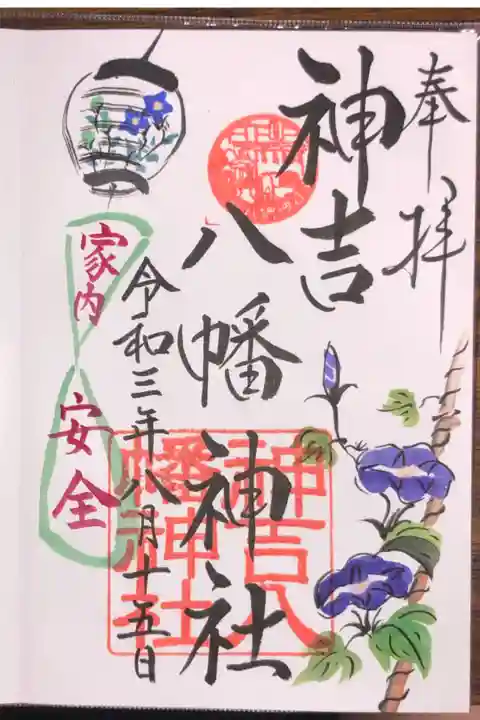 奉拝
神吉
八幡神社
令和三年八月十五日
家内
安全
神吉八
幡神社